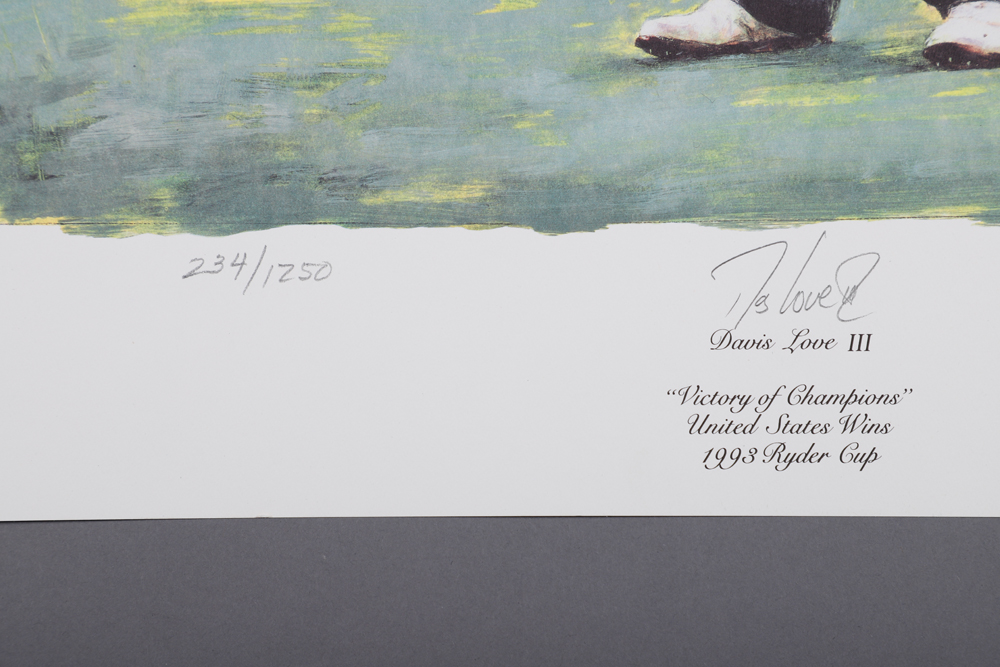 234/1250
Davis Love III
Davis Love III
"Victory of Champions"
United States Wins
1993 Ryder Cup